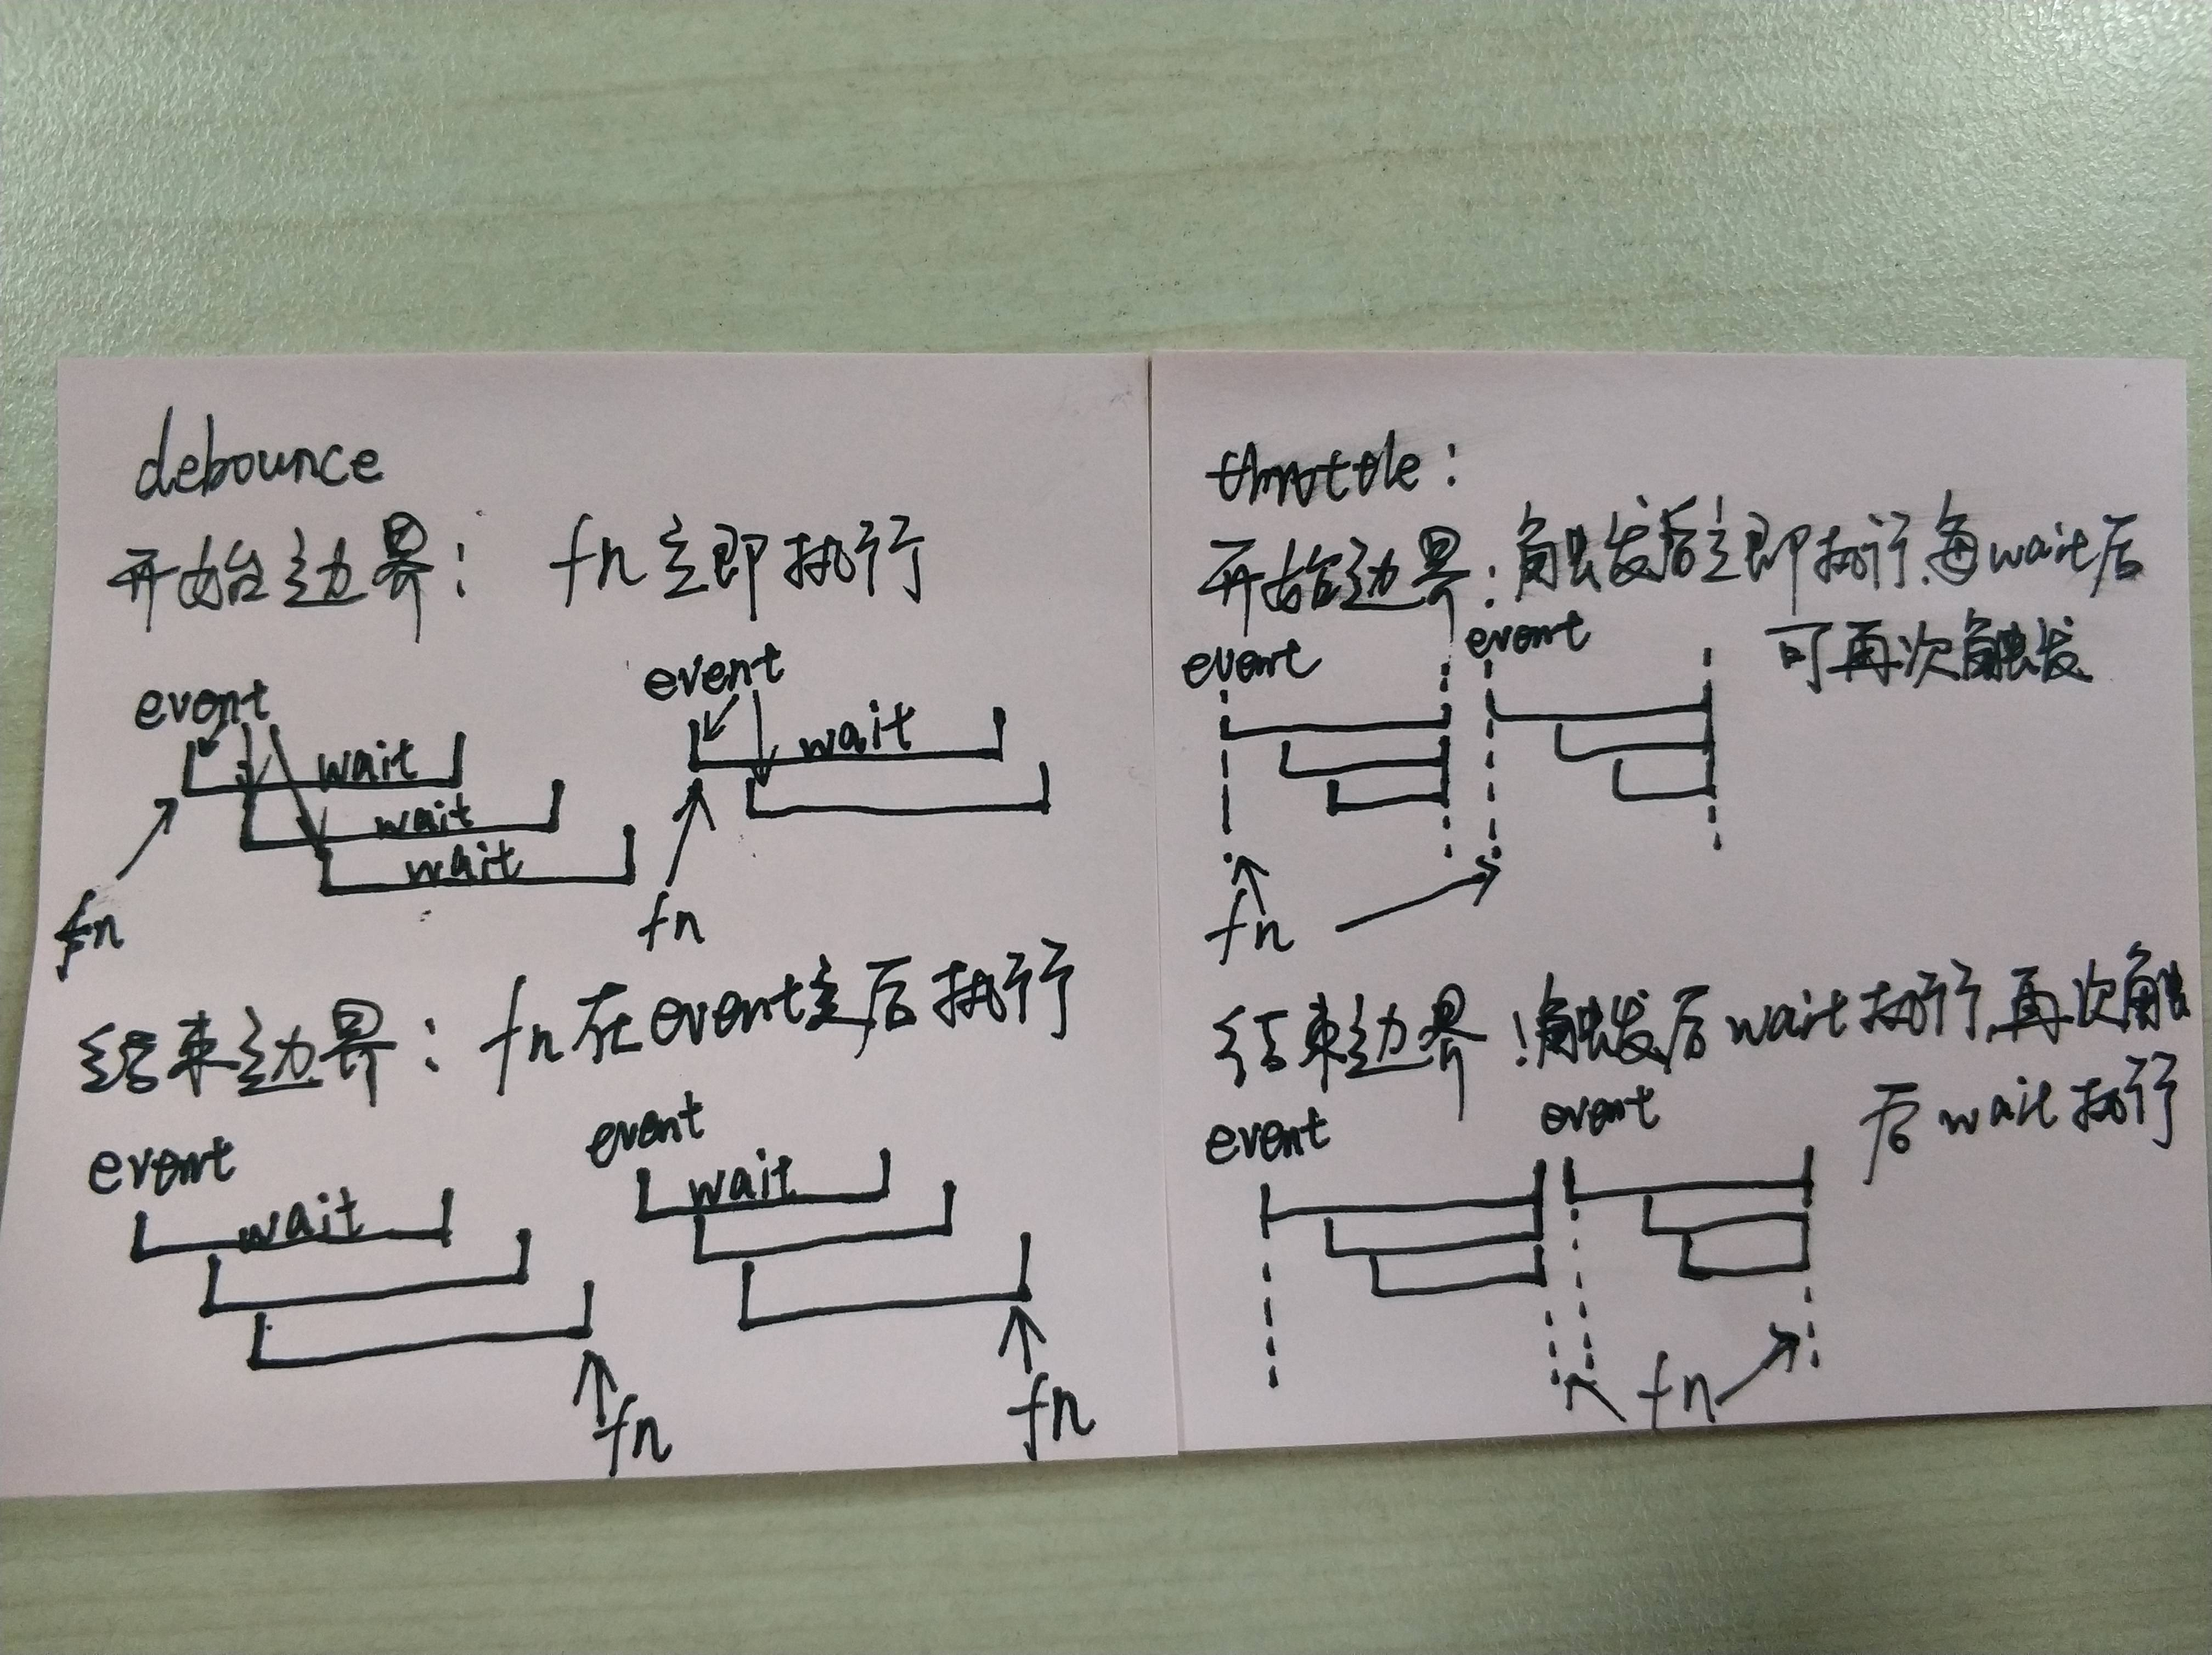 debounce
开始边界: fn立即执行
event event
wait wait
wait
wait
fn fn
结束边界: fn在event之后执行
event event
wait wait
fn fn
throttle:
开始边界:触发后立即执行,每wait后
可再次触发
event event
fn
结束边界:触发后wait执行,再次触
后wait执行
event event
fn